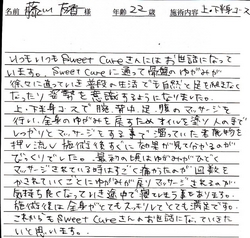 名前 藤山 友香 様 年齢 22 歳 施術内容 上下半身コース
いつもいつもSweet Cureさんにはお世話になって
います。Sweet Cureに通って骨盤のゆがみが
徐々に通っていき普段の生活でも自然と足を組まなく
なったり姿勢を意識するようになりました。
上下半身コースで腕、背中、足、腹のマッサージを
行い、全身のゆがみを戻すためオイルを塗り人の手で
しっかりとマッサージをする事で溜っていた老廃物を
押し流し施術後すぐに効果が見て分かるのが
びっくりでした。最初の頃はゆがみがひどく
マッサージされている時はすごく痛かったのが回数を
かされていくことにゆがみが戻りマッサージされるのが
気持ち良くなっていき途中で寝てしまう事もあります。
施術後は全身がとてもスッキリしてとても満足です。
これからもSweet Cureさんにお世話になっていきた
いと思います。